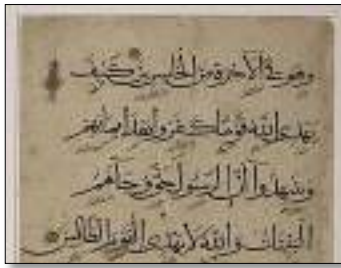 وهو في الآخرة من الخاسرين كيف
يهدي الله قوما كفروا بعد إيمانهم
وشهدوا أن الرسول حق وجاءهم
البينات والله لا يهدي القوم الظالمين